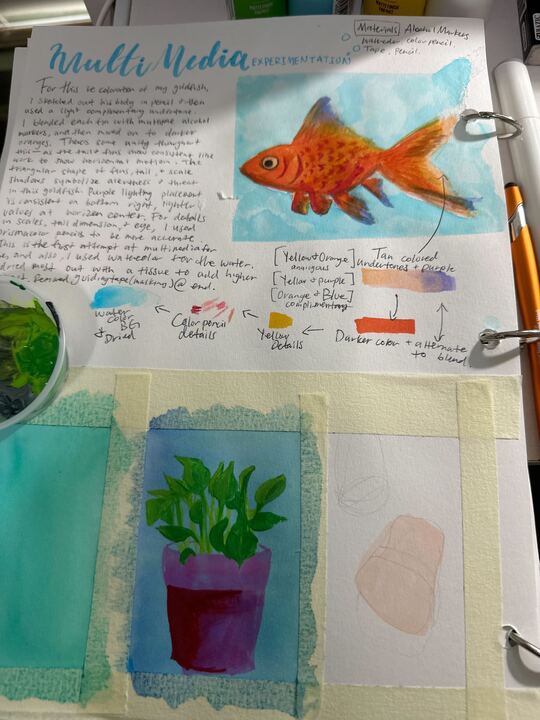 Multi Media EXPERIMENTATION
Materials Alcohol Markers,
watercolor, color pencil,
Tape, pencil.
For this re coloration of my goldfish,
I sketched out his body in pencil & then
used a light complimentary undertone.
I blended each fin with multiple alcohol
markers, and then moved on to darker
oranges. There's some unity throughout
as the tail & fins show consistent line
work to show horizontal motion. The
triangular shape of fins, tail, & scale
shadows symbolize alertness & threat
in this goldfish. Purple lighting placement
is consistent on bottom right, lighter
values at horizon center. For details
in scales, tail dimension, & eye, I used
prismacolor pencils to be more accurate
This is the first attempt at multimedia for
me, and also, I used watercolor for the water,
dried most out with a tissue to add higher
Removed guiding tape (masking) @ end.
[Yellow & Orange]
analogous
[Yellow & purple]
[Orange & Blue]
complimentary
Tan colored
undertones & purple
water
color
BG
& Dried
Color pencil
details
Yellow
Details
Darker colour & alternate
to blend